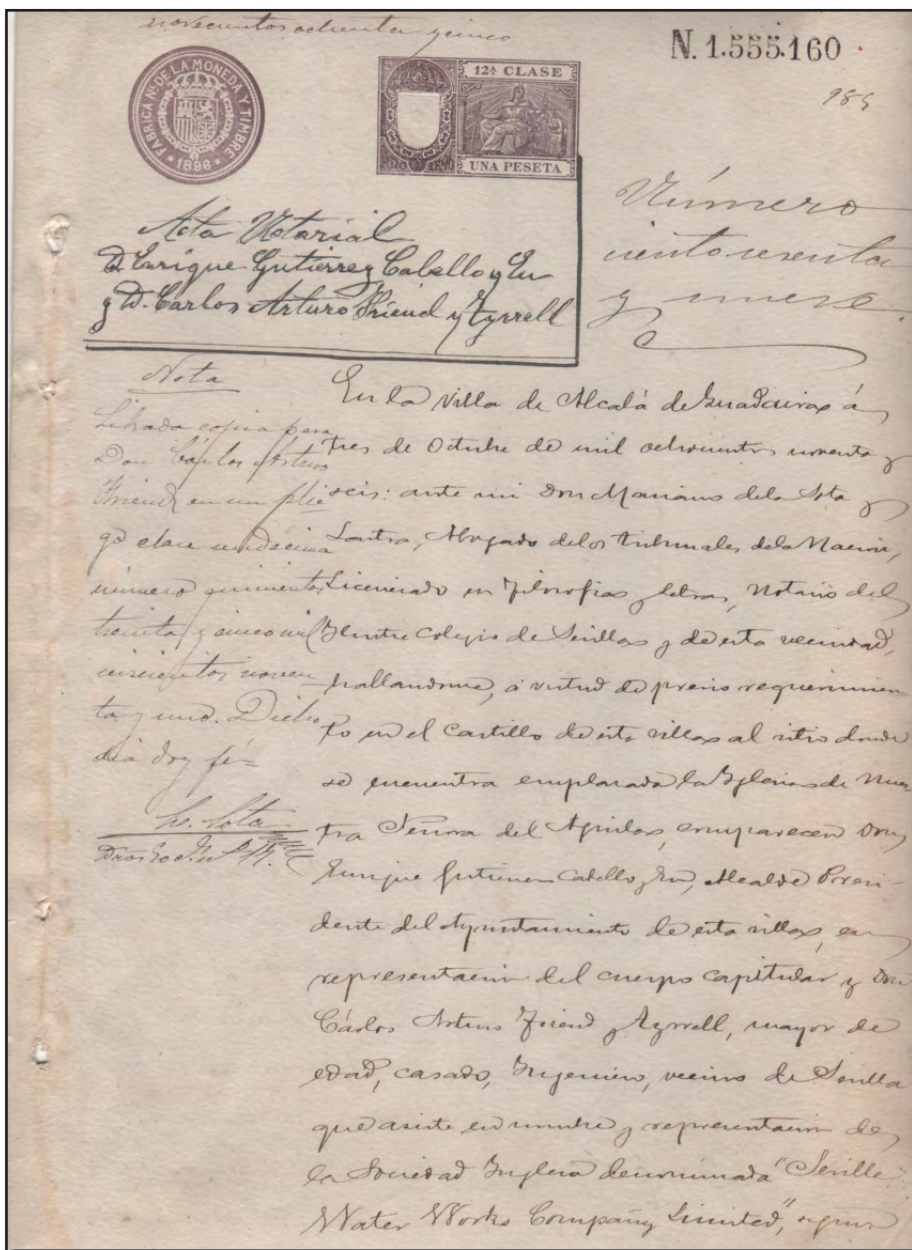 novecientos ochenta y cinco
N. 1.555.160
985
FÁBRICA Nal DE LA MONEDA Y TIMBRE
* 1896 *
12ª CLASE
UNA PESETA
Número
ciento sesenta
y nueve.
Acta Notarial
D. Enrique Gutierrez Cabello y Eu
y D. Carlos Arturo Friend y Tyrrell
Nota
Librada copia para
Don Cárlos Arturo
Friend en un plie
go clase undécima
número quinientos
treinta y cinco mil
seiscientos noven
ta y uno. Dicho
dia doy fé=
Ldo. Sota
En la Villa de Alcalá de Guadaira á
tres de Octubre de mil ochocientos noventa y
seis: ante mi Don Mariano de la Sota y
Lastra, Abogado de los tribunales de la Nacion,
Licenciado en Filosofia y letras, Notario del
Ilustre Colegio de Sevilla y de esta vecindad,
hallandome, á virtud de previo requerimien
to en el Castillo de esta villa al sitio donde
se encuentra emplazada la Iglesia de Nues
tra Señora del Aguila, comparecen Don
Enrique Gutierrez Cabello y Eu, Alcalde Presi-
dente del Ayuntamiento de esta villa, en
representacion del cuerpo capitular y Don
Cárlos Arturo Friend y Tyrrell, mayor de
edad, casado, Ingeniero, vecino de Sevilla
que asiste en nombre y representacion de
la Sociedad Inglesa denominada "Seville
Water Works Company Limited", segun